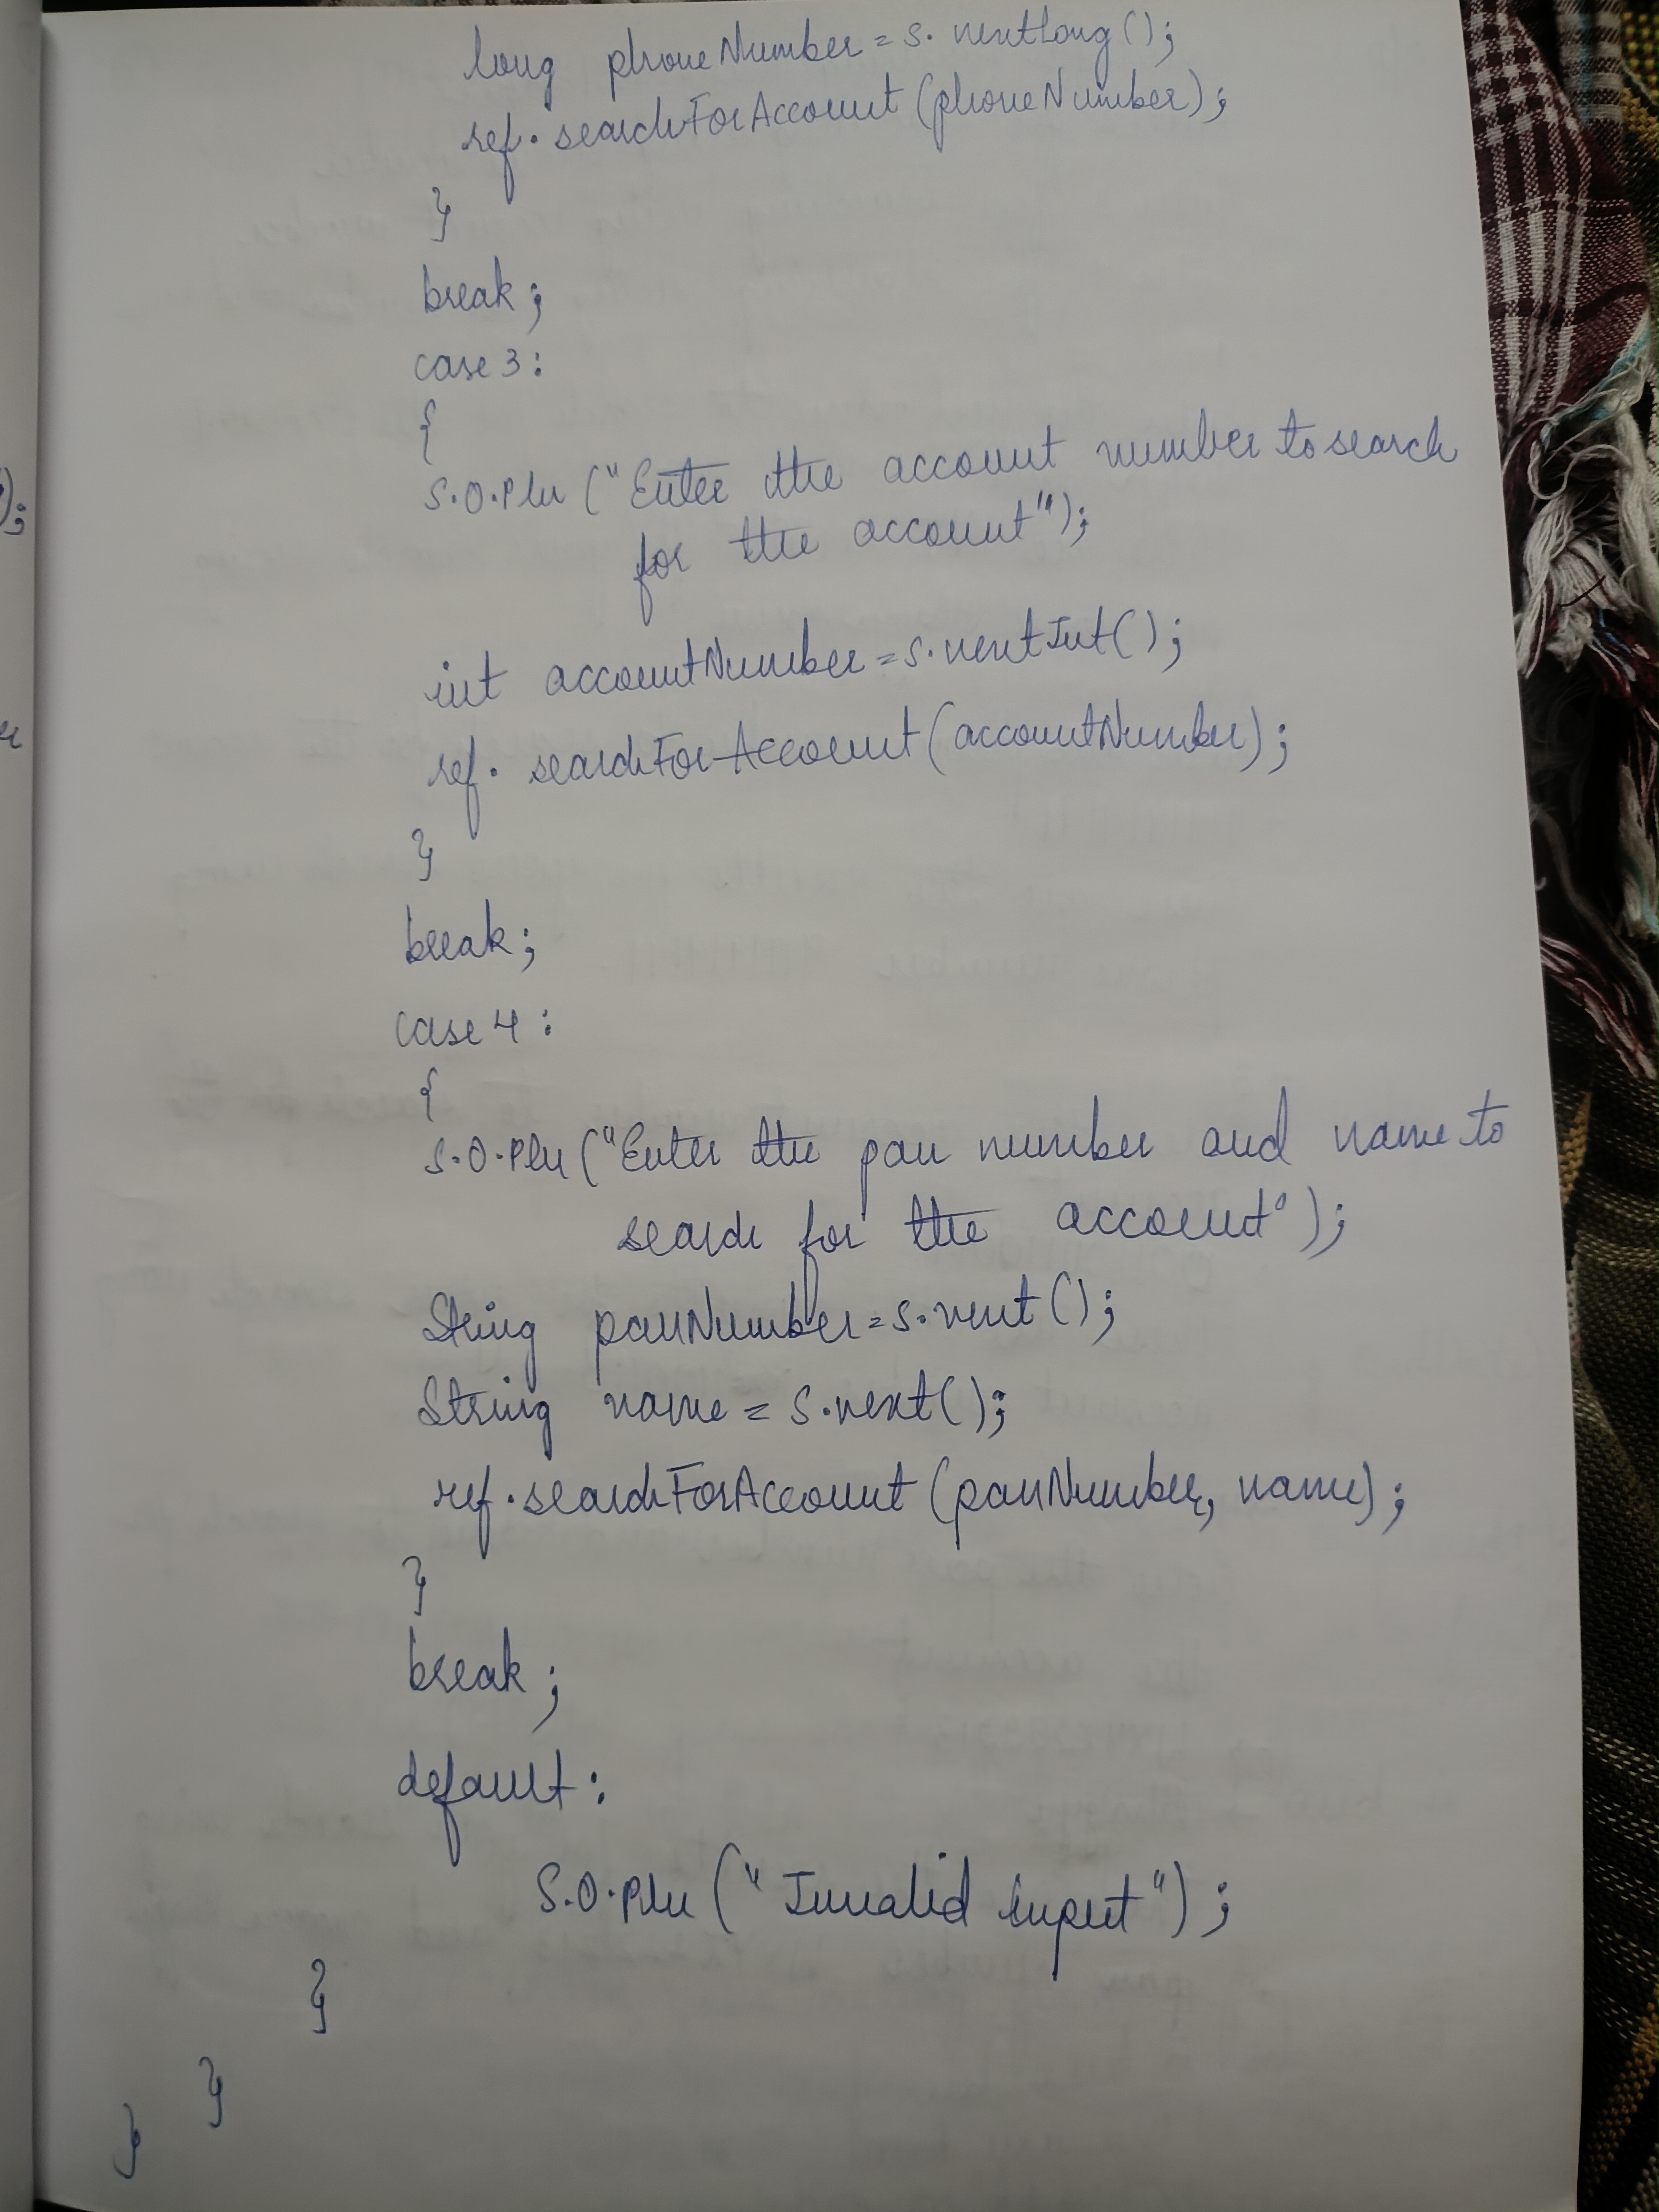 long phoneNumber = s. nextLong();
ref. searchForAccount (phoneNumber);
}
break;
case 3:
{
S.O.Pln ("Enter the account number to search
for the account");
);
int accountNumber = s.nextInt();
ref. searchForAccount (accountNumber);
}
break;
case 4:
{
S.O.Pln ("Enter the pan number and name to
search for the account");
String panNumber = s.next();
String name = s.next();
ref.searchForAccount (panNumber, name);
}
break;
default:
S.O.Pln ("Invalid input");
}
}
}